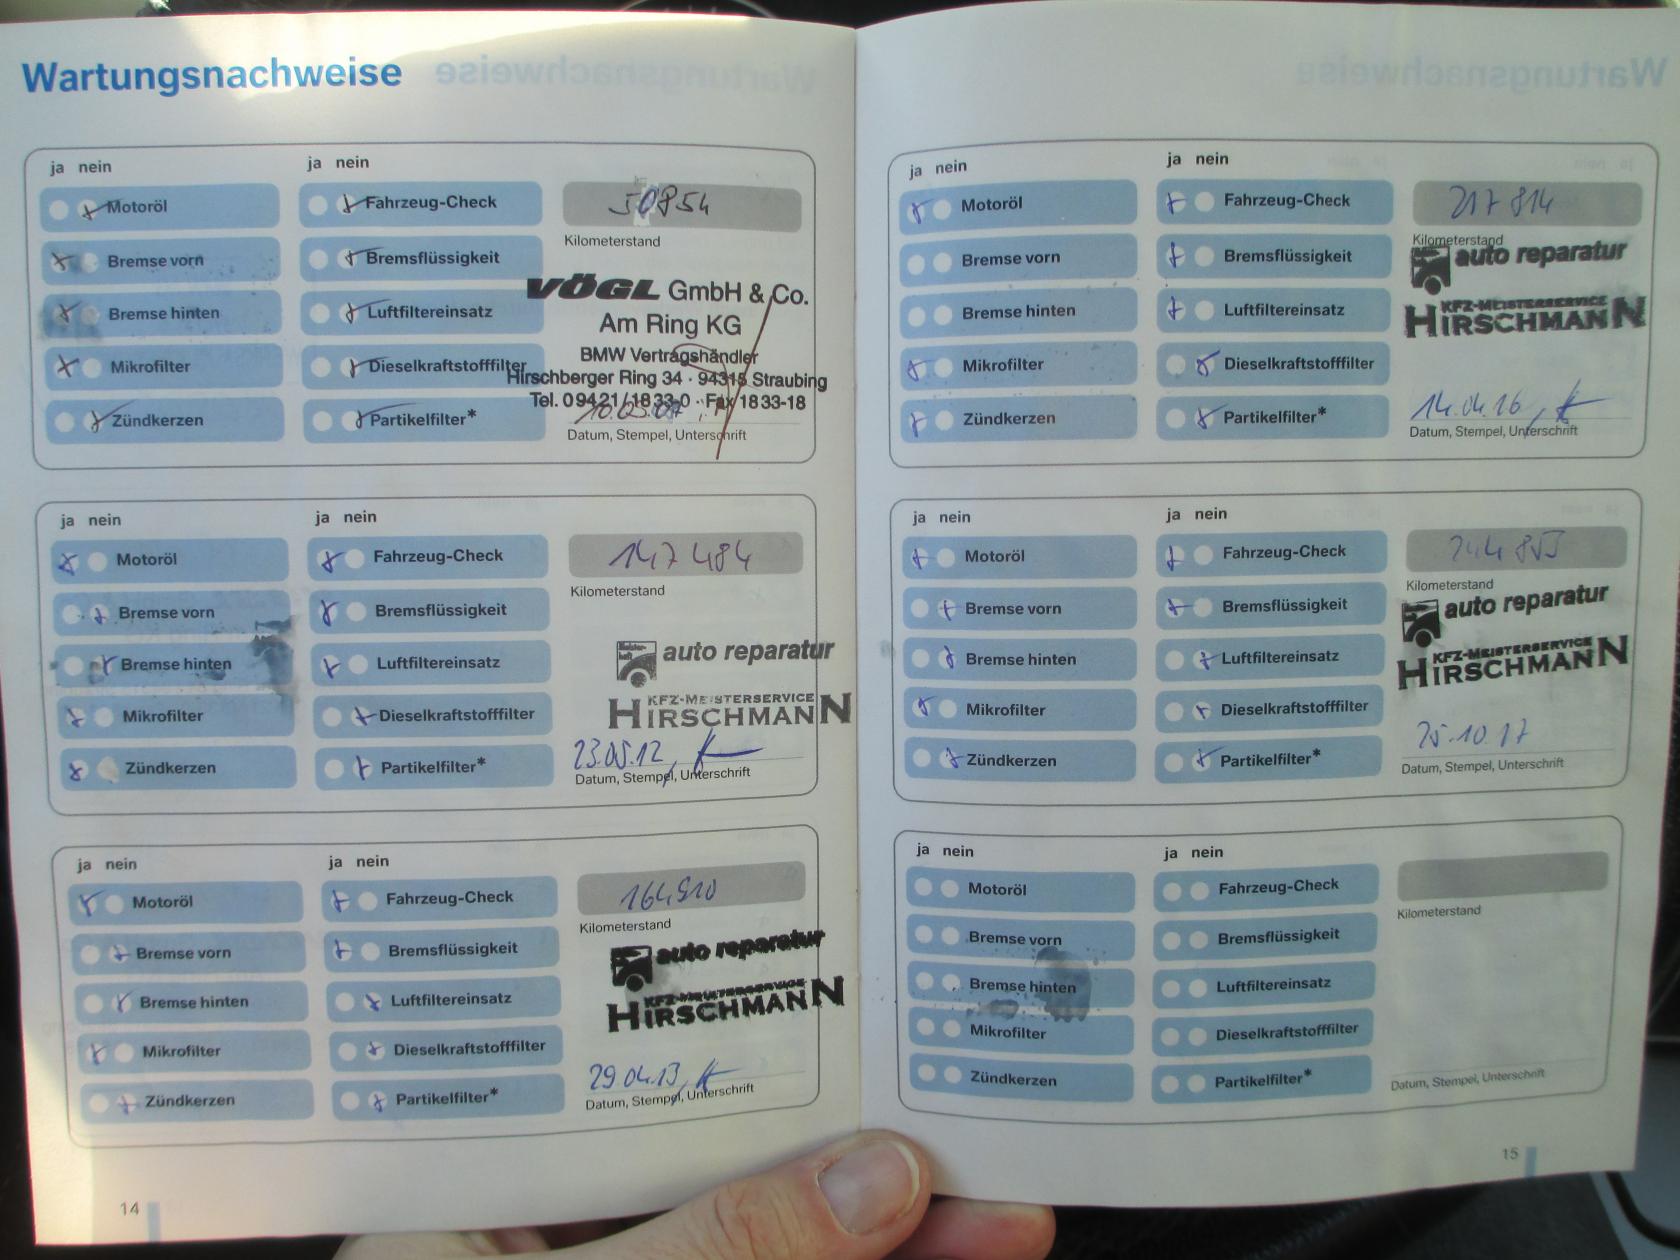 Wartungsnachweise
ja nein
ja nein
Motoröl
Fahrzeug-Check
50854
Bremse vorn
Bremsflüssigkeit
Kilometerstand
Bremse hinten
Luftfiltereinsatz
VÖGL GmbH & Co.
Am Ring KG
Mikrofilter
Dieselkraftstofffilter
BMW Vertragshändler
Hirschberger Ring 34 · 94315 Straubing
Tel. 09421/1833-0 · Fax 1833-18
Zündkerzen
Partikelfilter*
Datum, Stempel, Unterschrift
ja nein
ja nein
Motoröl
Fahrzeug-Check
147 484
Bremse vorn
Bremsflüssigkeit
Kilometerstand
Bremse hinten
Luftfiltereinsatz
auto reparatur
Mikrofilter
Dieselkraftstofffilter
KFZ-MEISTERSERVICE
HIRSCHMANN
Zündkerzen
Partikelfilter*
23.05.12,
Datum, Stempel, Unterschrift
ja nein
ja nein
Motoröl
Fahrzeug-Check
164910
Bremse vorn
Bremsflüssigkeit
Kilometerstand
Bremse hinten
Luftfiltereinsatz
auto reparatur
Mikrofilter
Dieselkraftstofffilter
KFZ-MEISTERSERVICE
HIRSCHMANN
Zündkerzen
Partikelfilter*
29.04.13,
Datum, Stempel, Unterschrift
14
ja nein
ja nein
Motoröl
Fahrzeug-Check
217 814
Bremse vorn
Bremsflüssigkeit
Kilometerstand
auto reparatur
Bremse hinten
Luftfiltereinsatz
KFZ-MEISTERSERVICE
HIRSCHMANN
Mikrofilter
Dieselkraftstofffilter
Zündkerzen
Partikelfilter*
14.04.16,
Datum, Stempel, Unterschrift
ja nein
ja nein
Motoröl
Fahrzeug-Check
244 853
Bremse vorn
Bremsflüssigkeit
Kilometerstand
auto reparatur
Bremse hinten
Luftfiltereinsatz
KFZ-MEISTERSERVICE
HIRSCHMANN
Mikrofilter
Dieselkraftstofffilter
Zündkerzen
Partikelfilter*
25.10.17
Datum, Stempel, Unterschrift
ja nein
ja nein
Motoröl
Fahrzeug-Check
Bremse vorn
Bremsflüssigkeit
Kilometerstand
Bremse hinten
Luftfiltereinsatz
Mikrofilter
Dieselkraftstofffilter
Zündkerzen
Partikelfilter*
Datum, Stempel, Unterschrift
15